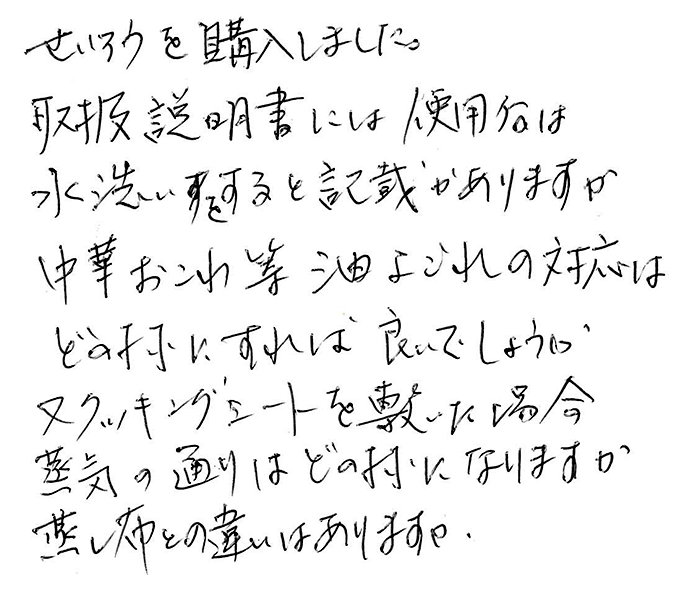 せいろうを購入しました。
取扱説明書には使用后は
水洗いをすると記載がありますが
中華おこわ等油よごれの対応は
どの様にすれば良いでしょうか
クッキングシートを敷いた場合
蒸気の通りはどの様になりますか
蒸し布との違いはありますか.